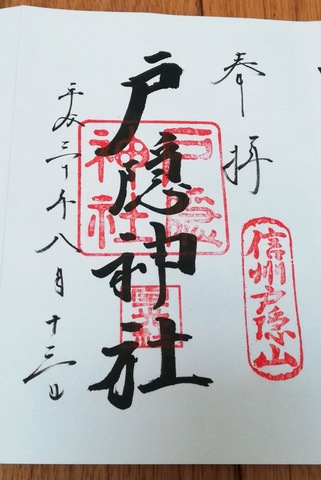 奉拝
信州戸隠山
戸隠神社
戸隠神社
平成三十年八月十三日